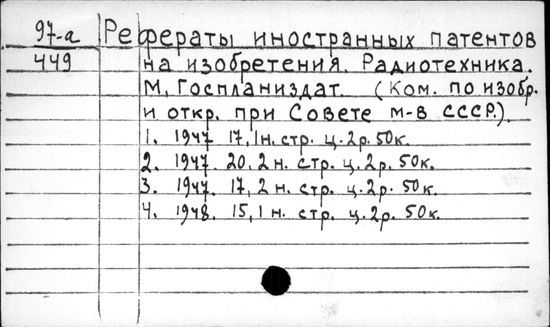 97-а
449
Рефераты иностранных патентов
на изобретения. Радиотехника.
М, Госпланиздат. (Ком. по изобр.
и откр. при Совете м-в СССР.).
1. 1947 17, 1н. стр. ц. 2р. 50к.
2. 1947. 20. 2 н. стр. ц. 2р. 50к.
3. 1947. 17, 2 н. стр. ц. 2р. 50к.
4. 1948. 15, 1 н. стр. ц. 2р. 50к.